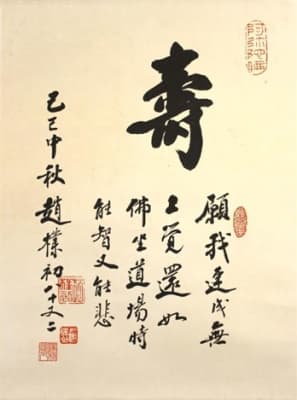 壽
願我速成無
上覺還如
佛坐道場時
能智又能悲
己巳中秋趙樸初八十又二